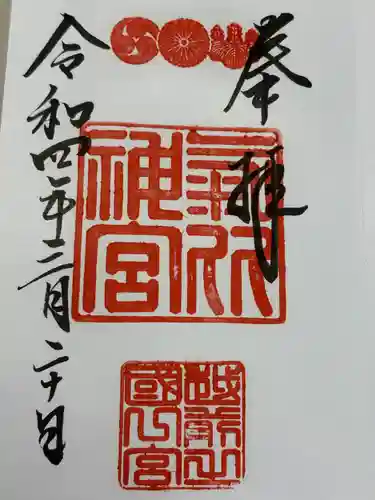 奉拝
氣比
神宮
越前之
國一宮
令和四年三月二十日